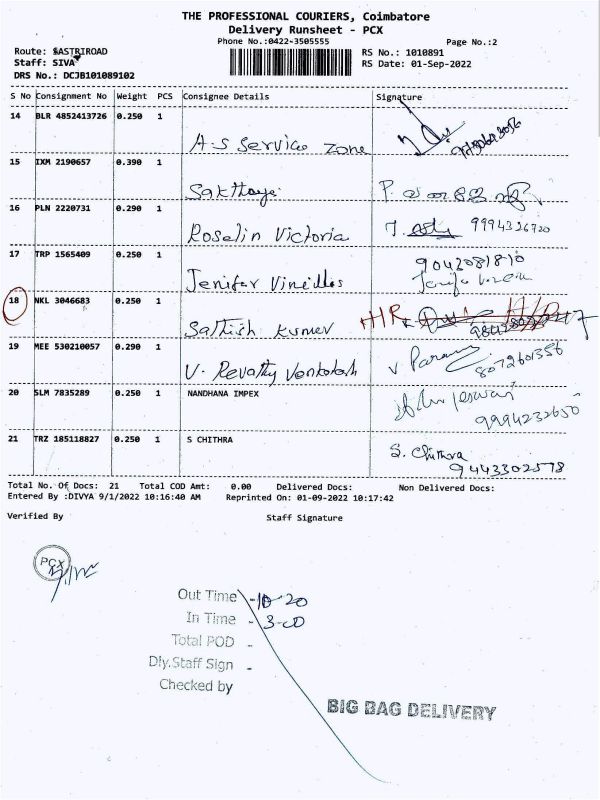 THE PROFESSIONAL COURIERS, Coimbatore
Delivery Runsheet - PCX
Phone No.:0422-3505555 Page No.:2
Route: SASTRIROAD RS No.: 1010891
Staff: SIVA RS Date: 01-Sep-2022
DRS No.: DCJB101089102
S No Consignment No Weight PCS Consignee Details Signature
14 BLR 4852413726 0.250 1
A-S Service Zone
15 IXM 2190657 0.390 1
Sakthaye P.
16 PLN 2220731 0.290 1
Roselin Victoria 9994326720
17 TRP 1565409 0.250 1
Jenifer Vineilles 9042081810
18 NKL 3046683 0.250 1
Sathish kumer HR
19 MEE 530210057 0.290 1
V. Revathy Venkatesh 8072601356
20 SLM 7835289 0.250 1 NANDHANA IMPEX
9994232650
21 TRZ 185118827 0.250 1 S CHITHRA
S. Chithra
9443302578
Total No. Of Docs: 21 Total COD Amt: 0.00 Delivered Docs: Non Delivered Docs:
Entered By :DIVYA 9/1/2022 10:16:40 AM Reprinted On: 01-09-2022 10:17:42
Verified By Staff Signature
PCX
Out Time - 10-20
In Time - 3-00
Total POD -
Dly.Staff Sign -
Checked by
BIG BAG DELIVERY